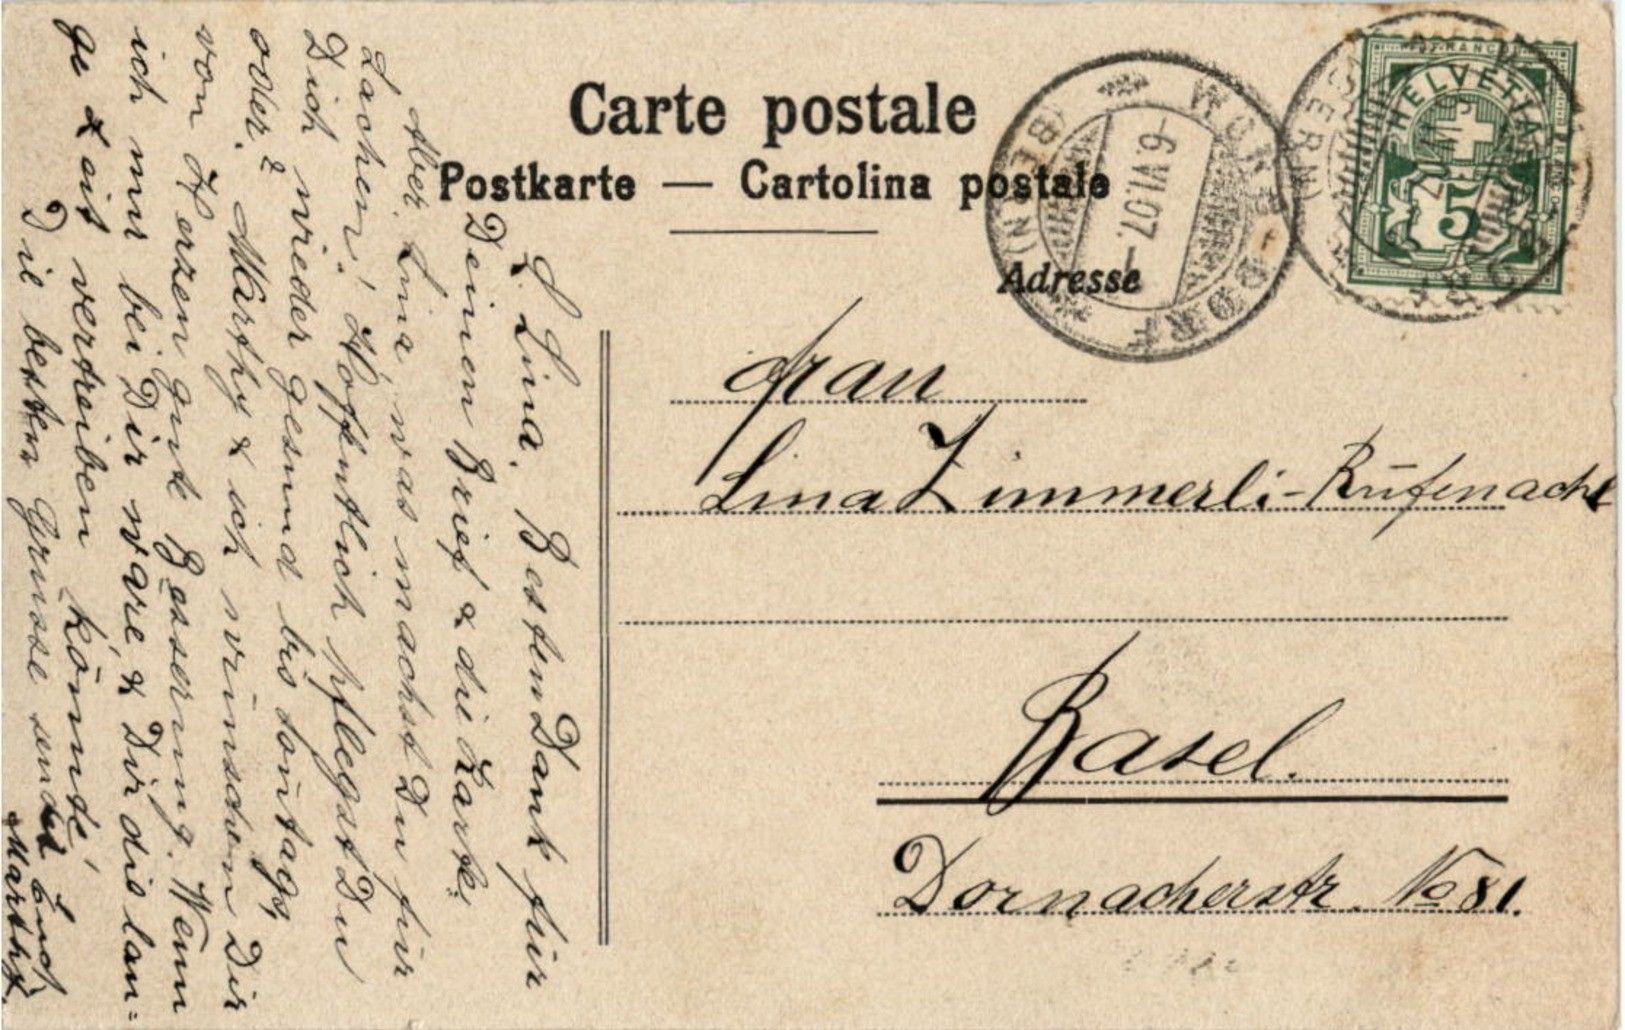 Carte postale
Postkarte — Cartolina postale
Adresse
HELVETIA
FRANCO
5
WORB
(BERN)
-6.VI.07.-
Frau
Lina Zimmerli-Rüfenacht
Basel.
Dornacherstr. No 81.
L. Lina. Besten Dank für
Deinen Brief & die Karte.
Aber, Lina, was machst Du für
Sachen! Hoffentlich pflegst Du
Dich wieder gesund bis Sontags,
Marthy & ich wünschen Dir
von Herzen gute Besserung. Wenn
ich nur bei Dir wäre, & Dir die lan=
ge Zeit vertreiben könnte!
Die besten Grüsse sendet
Marthy.